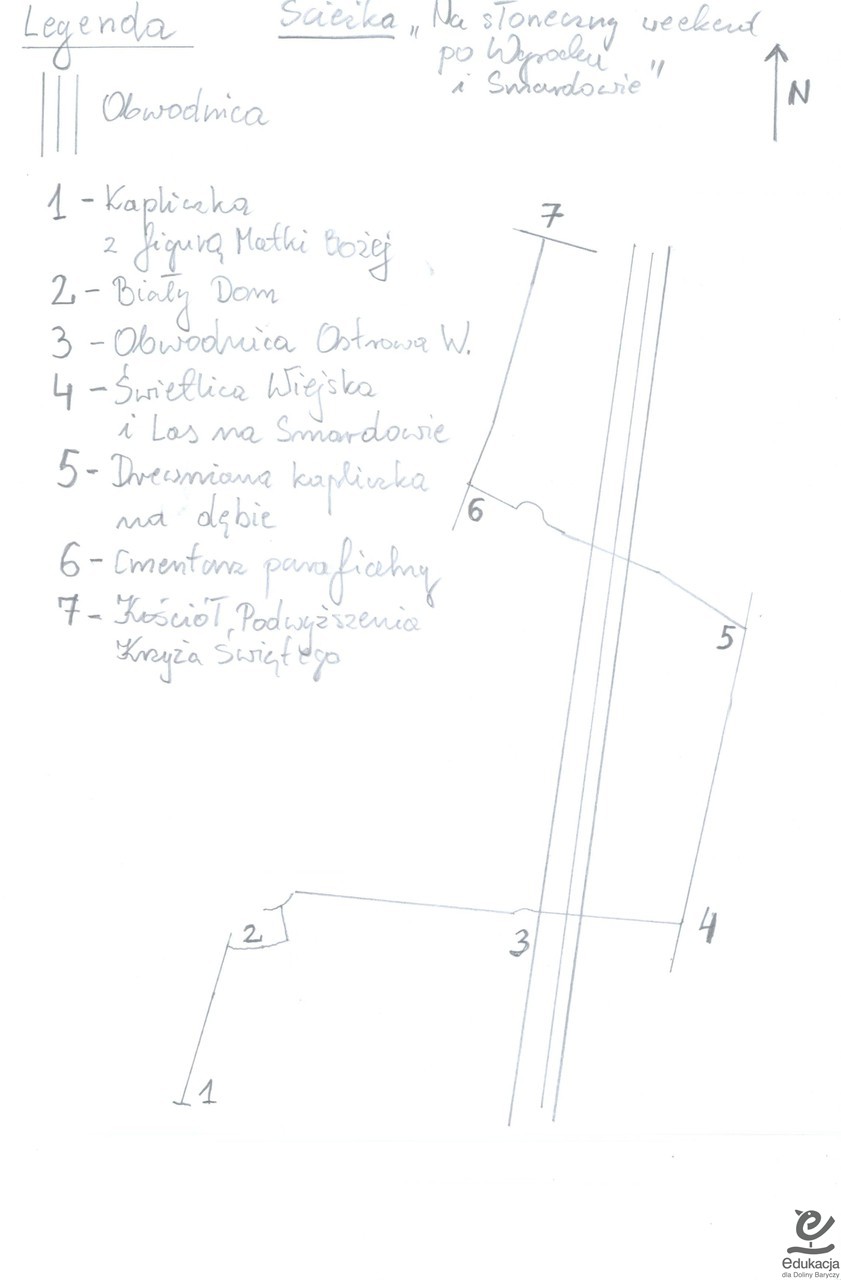 Legenda
Ścieżka „Na słoneczny weekend
po Wysocku
i Smardowie"
N
Obwodnica
1 - Kapliczka
z figurą Matki Bożej
2 - Biały Dom
3 - Obwodnica Ostrowa W.
4 - Świetlica Wiejska
i Las na Smardowie
5 - Drewniana kapliczka
na dębie
6 - Cmentarz parafialny
7 - Kościół, Podwyższenia
Krzyża Świętego
7
6
5
4
3
2
1
edukacja
dla Doliny Baryczy